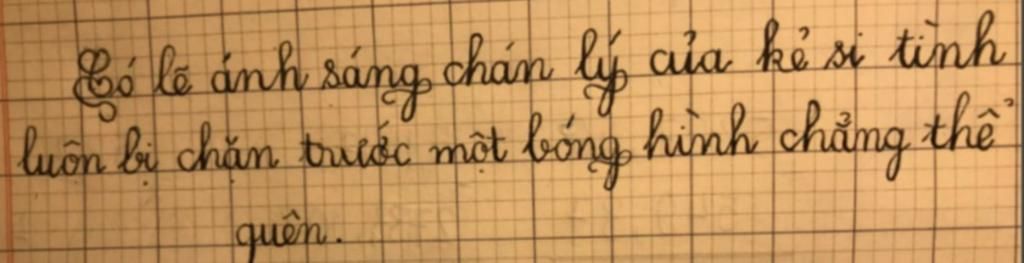 Có lẽ ánh sáng chán lý của kẻ si tình
luôn bị chặn trước một bóng hình chẳng thể
quên.